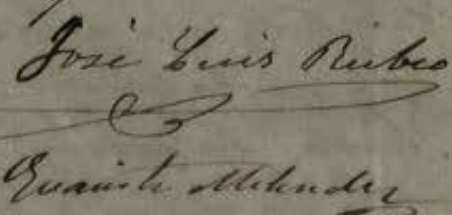 José Luis Rubio
Evaristo Melendez